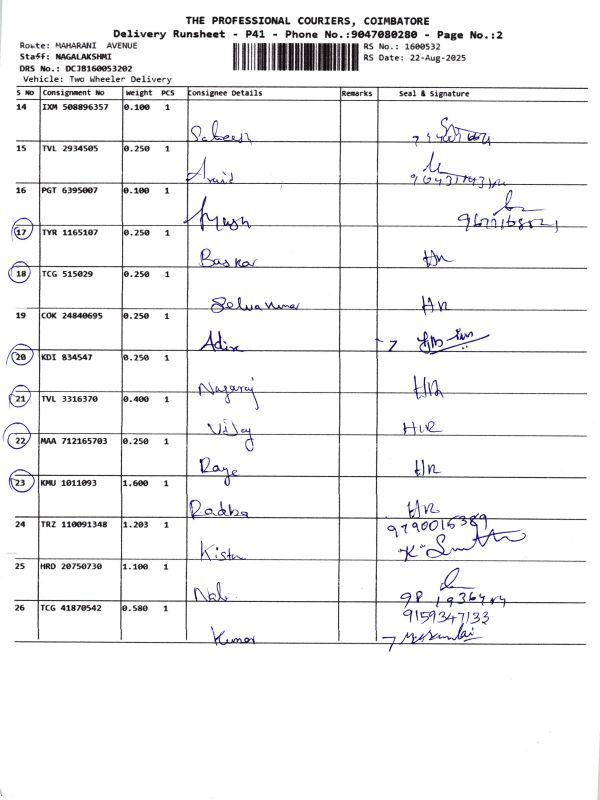 THE PROFESSIONAL COURIERS, COIMBATORE
Delivery Runsheet - P41 - Phone No.:9047080280 - Page No.:2
Route: MAHARANI AVENUE RS No.: 1600532
Staff: NAGALAKSHMI RS Date: 22-Aug-2025
DRS No.: DCJB160053202
Vehicle: Two Wheeler Delivery
S No Consignment No Weight PCS Consignee Details Remarks Seal & Signature
14 IXM 508896357 0.100 1
Sateesh
15 TVL 2934505 0.250 1
Arvid
16 PGT 6395007 0.100 1
17 TYR 1165107 0.250 1
Baskar HR
18 TCG 515029 0.250 1
Selvakumar HR
19 COK 24840695 0.250 1
20 KDI 834547 0.250 1
Nagaraj HR
21 TVL 3316370 0.400 1
Vijay HR
22 MAA 712165703 0.250 1
HR
23 KMU 1011093 1.600 1
Radha HR
24 TRZ 110091348 1.203 1 9790015389
25 HRD 20750730 1.100 1
26 TCG 41870542 0.580 1 9159347133
Kumar